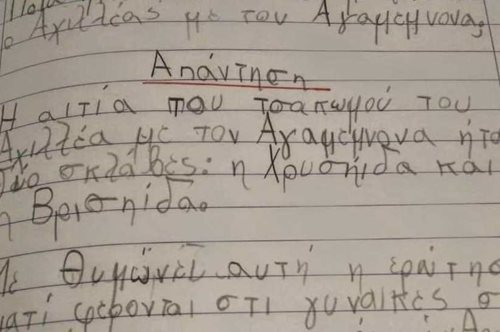 ο Αχιλλέας με τον Αγαμέμνονα;
Απάντηση
Η αιτία που τσακωμού του
Αχιλλέα με τον Αγαμέμνονα ήτα
δύο σκλάβες: η Χρυσηίδα και
η Βρισηίδα.
Με θυμώνει αυτή η ερώτησ
γιατί φέρονται στι γυναίκες σ